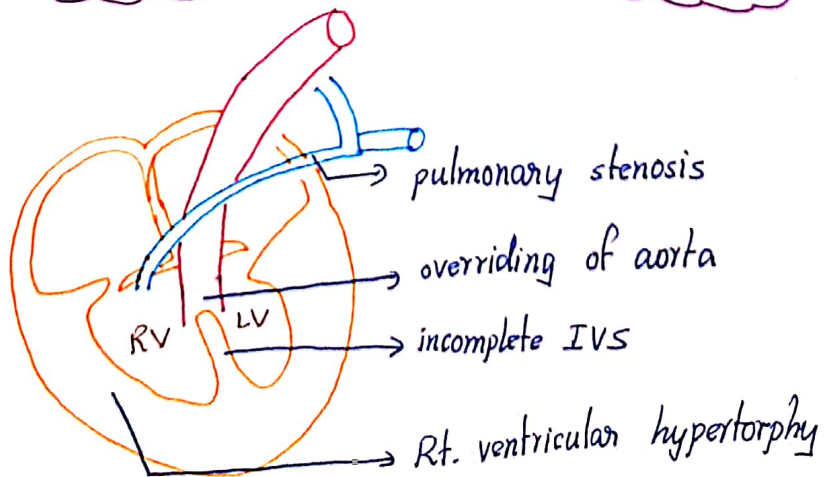 pulmonary stenosis
overriding of aorta
RV LV
incomplete IVS
Rt. ventricular hypertorphy